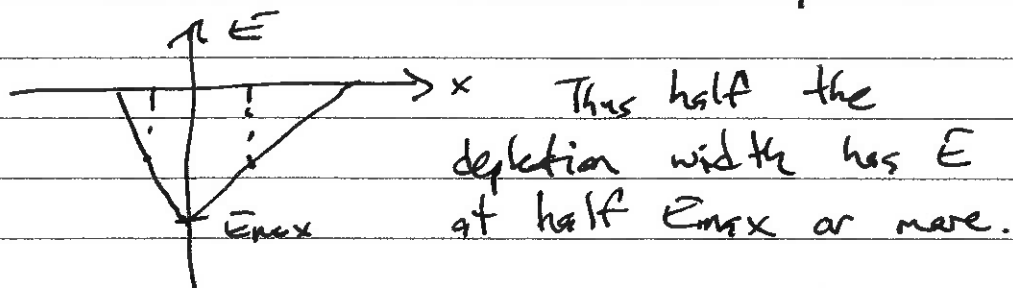 E
x Thus half the
depletion width has E
Emax at half Emax or more.